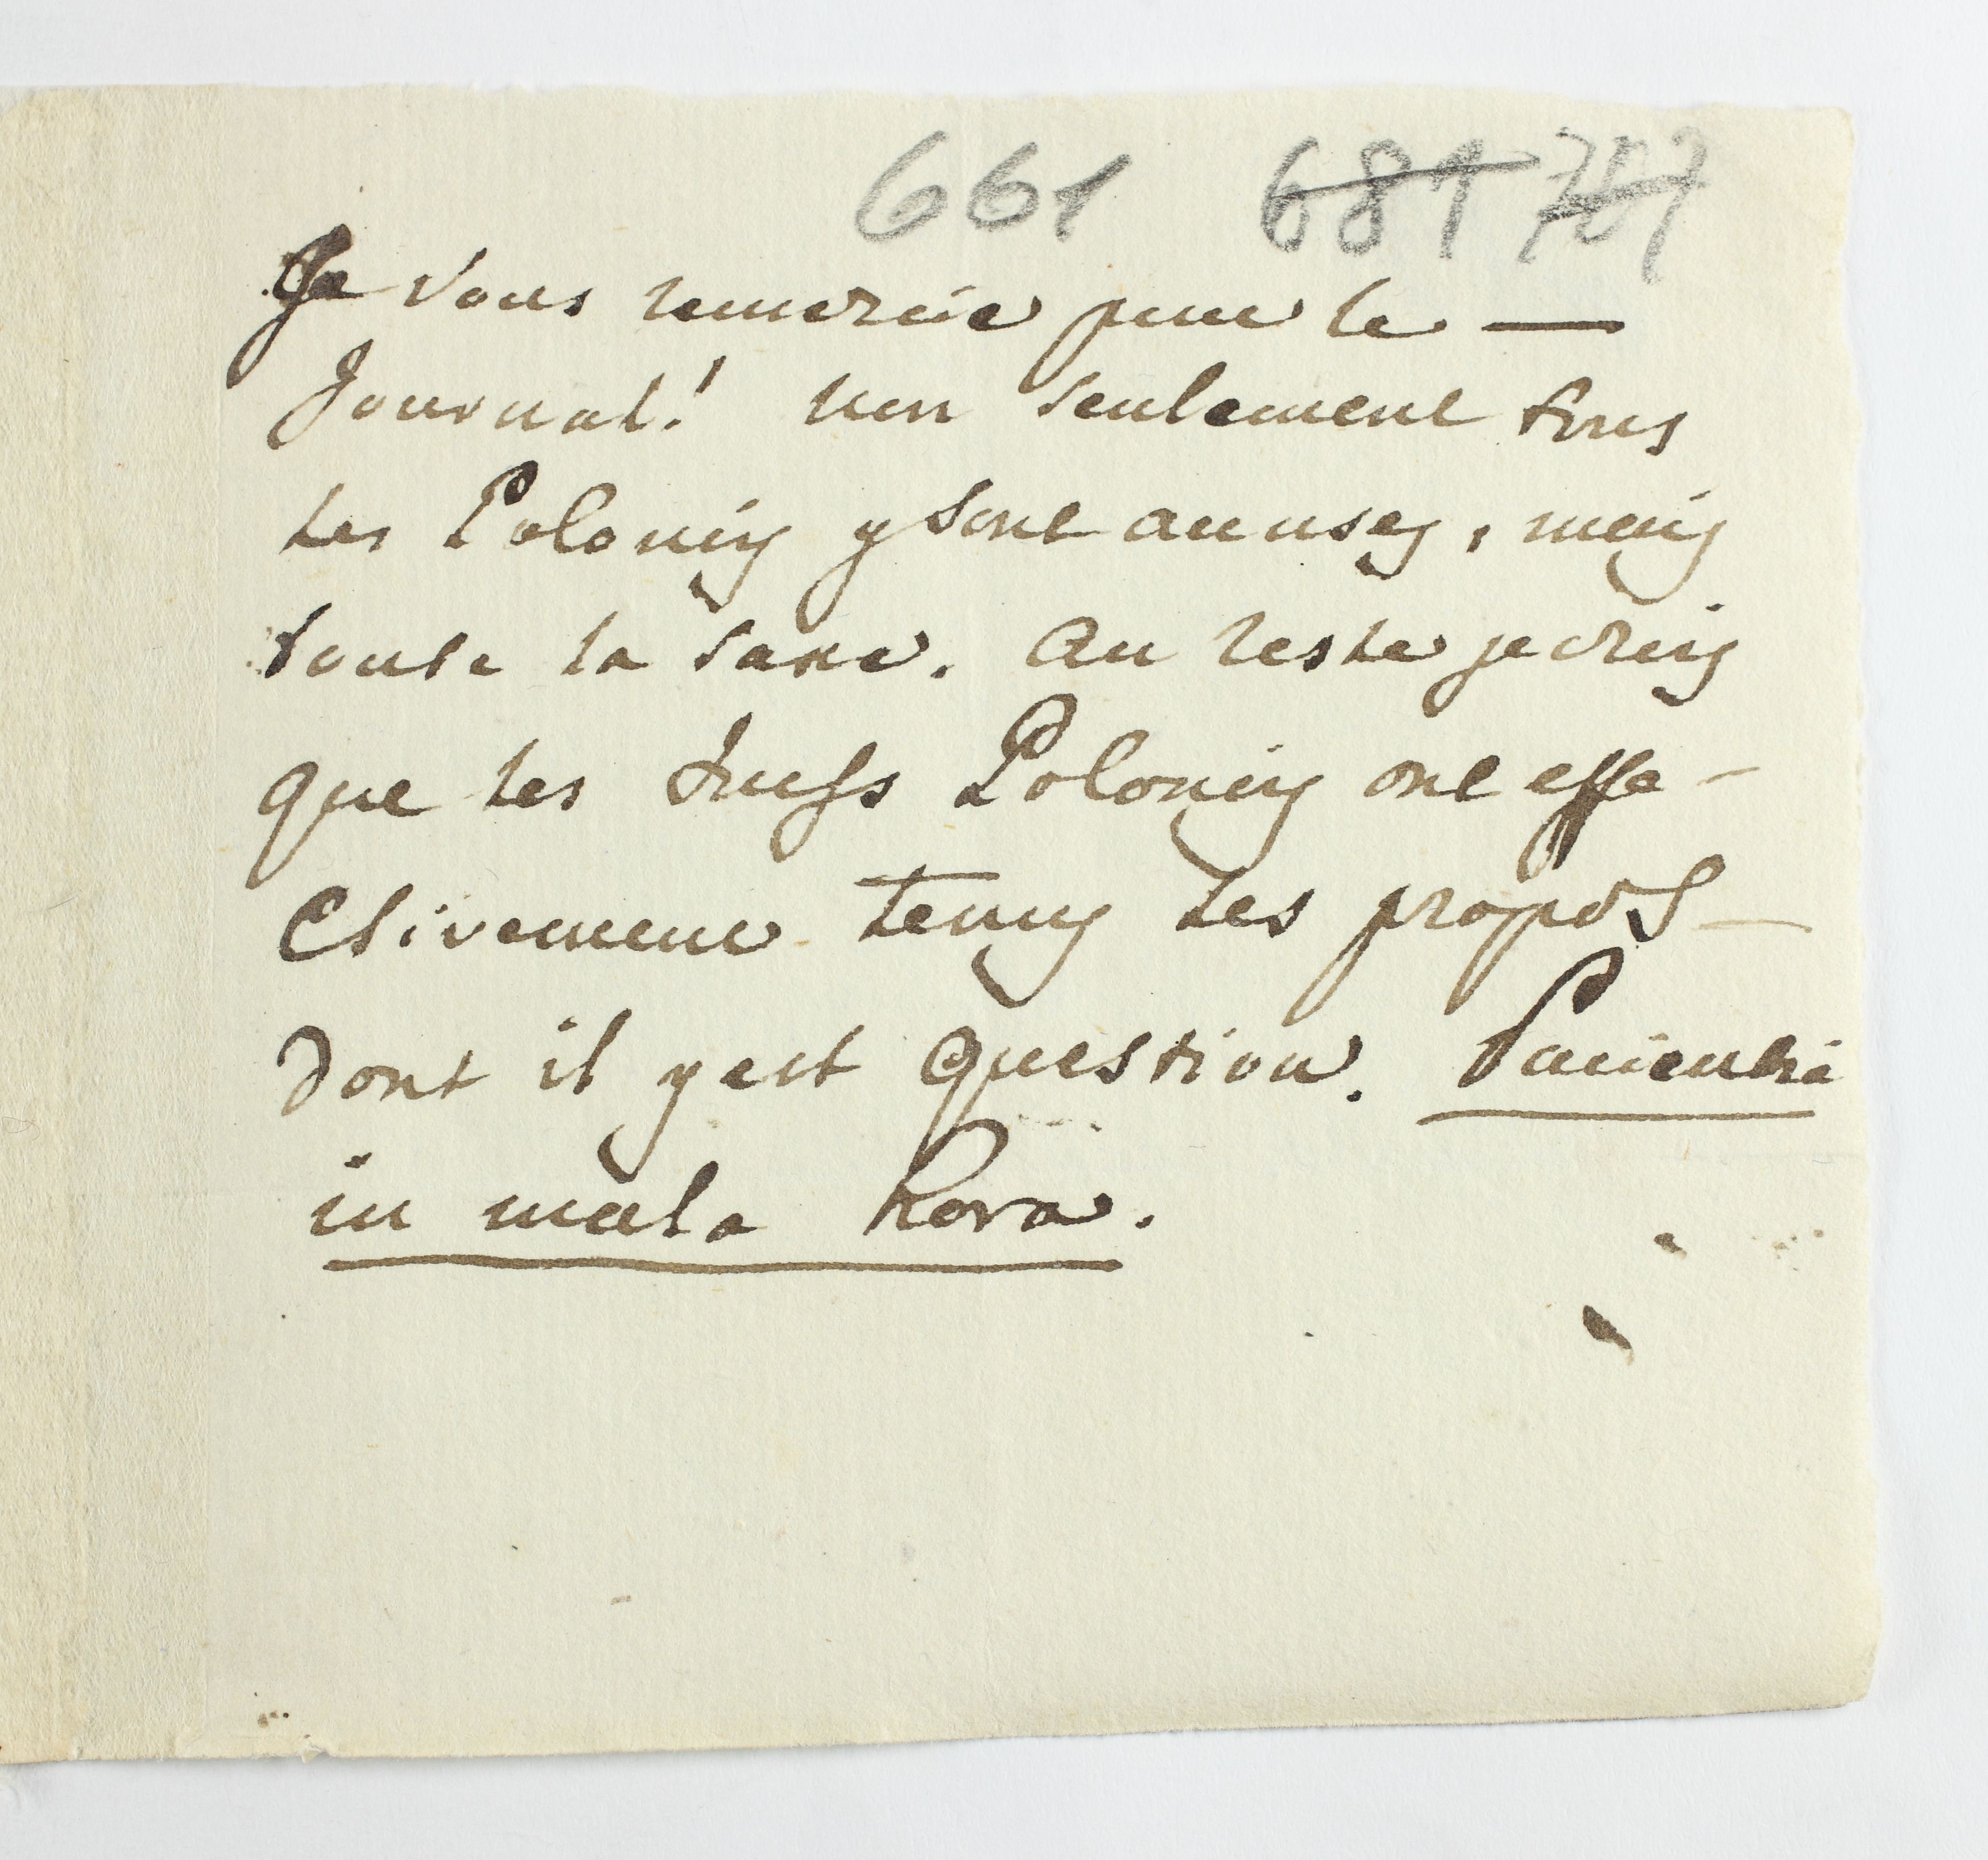 661 681 707
Je vous remercie pour le —
Journal! non seulement tous
les Polonois y sont accusés, mais
toute la Saxe. Au reste je crois
que les Juifs Polonois ont effe-
ctivement tenus les propos —
dont il y est question. Pacientia
in mala hora.